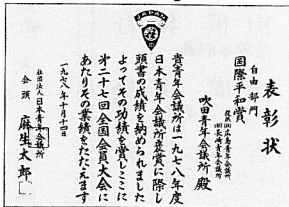 表彰状
自由部門
国際平和賞
吹田青年会議所 殿
貴青年会議所は一九七八年度
日本青年会議所褒賞に際し
頭書の成績を納められました
よってその功績を賞しここに
第二十七回全国会員大会に
あたりその業績をたたえます
一九七八年十月十四日
社団法人 日本青年会議所
会頭 麻生太郎